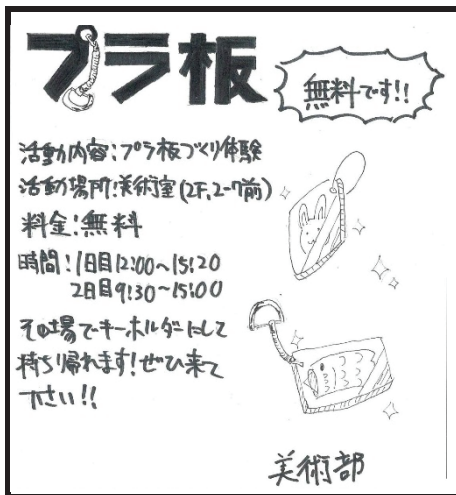 プラ板
無料です!!
活動内容:プラ板づくり体験
活動場所:美術室(2F,2-7前)
料金:無料
時間:1日目12:00~15:20
2日目9:30~15:00
その場でキーホルダーにして
持ち帰れます!ぜひ来て
下さい!!
美術部